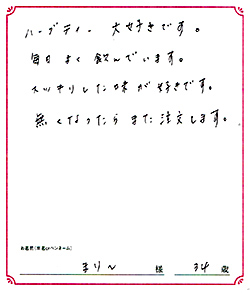 ハーブティー 大好きです。
毎日 よく 飲んでいます。
スッキリした味が好きです。
無くなったら また 注文します。
お名前(匿名orペンネーム)
まりん 様 34 歳